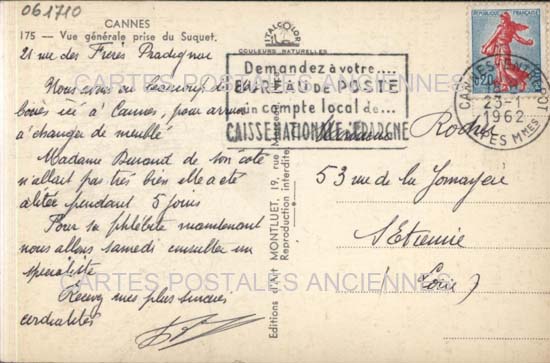 061710
CANNES
175 — Vue générale prise du Suquet.
21 rue des Frères Pradignac
Nous avons eu beaucoup de
ici à Cannes, pour arriver
à changer de meublé
Madame Durand de son côté
n'allait pas très bien elle a été
alitée pendant 5 jours
Pour sa phlébite maintenant
nous allons samedi consulter un
spécialiste
Recevez mes plus sincères
cordialités
ITALCOLOR
COULEURS NATURELLES
Editions d'Art MONTLUET, 19, rue
Reproduction interdite
Demandez à votre....
BUREAU DE POSTE
un compte local de...
CAISSE NATIONALE D'EPARGNE
REPUBLIQUE FRANÇAISE
0,20
CANNES
23-1
1962
ALPES MMES
53 rue de la
St Etienne
(Loire)
CARTES POSTALES ANCIENNES
CARTES POSTALES ANCIENNES